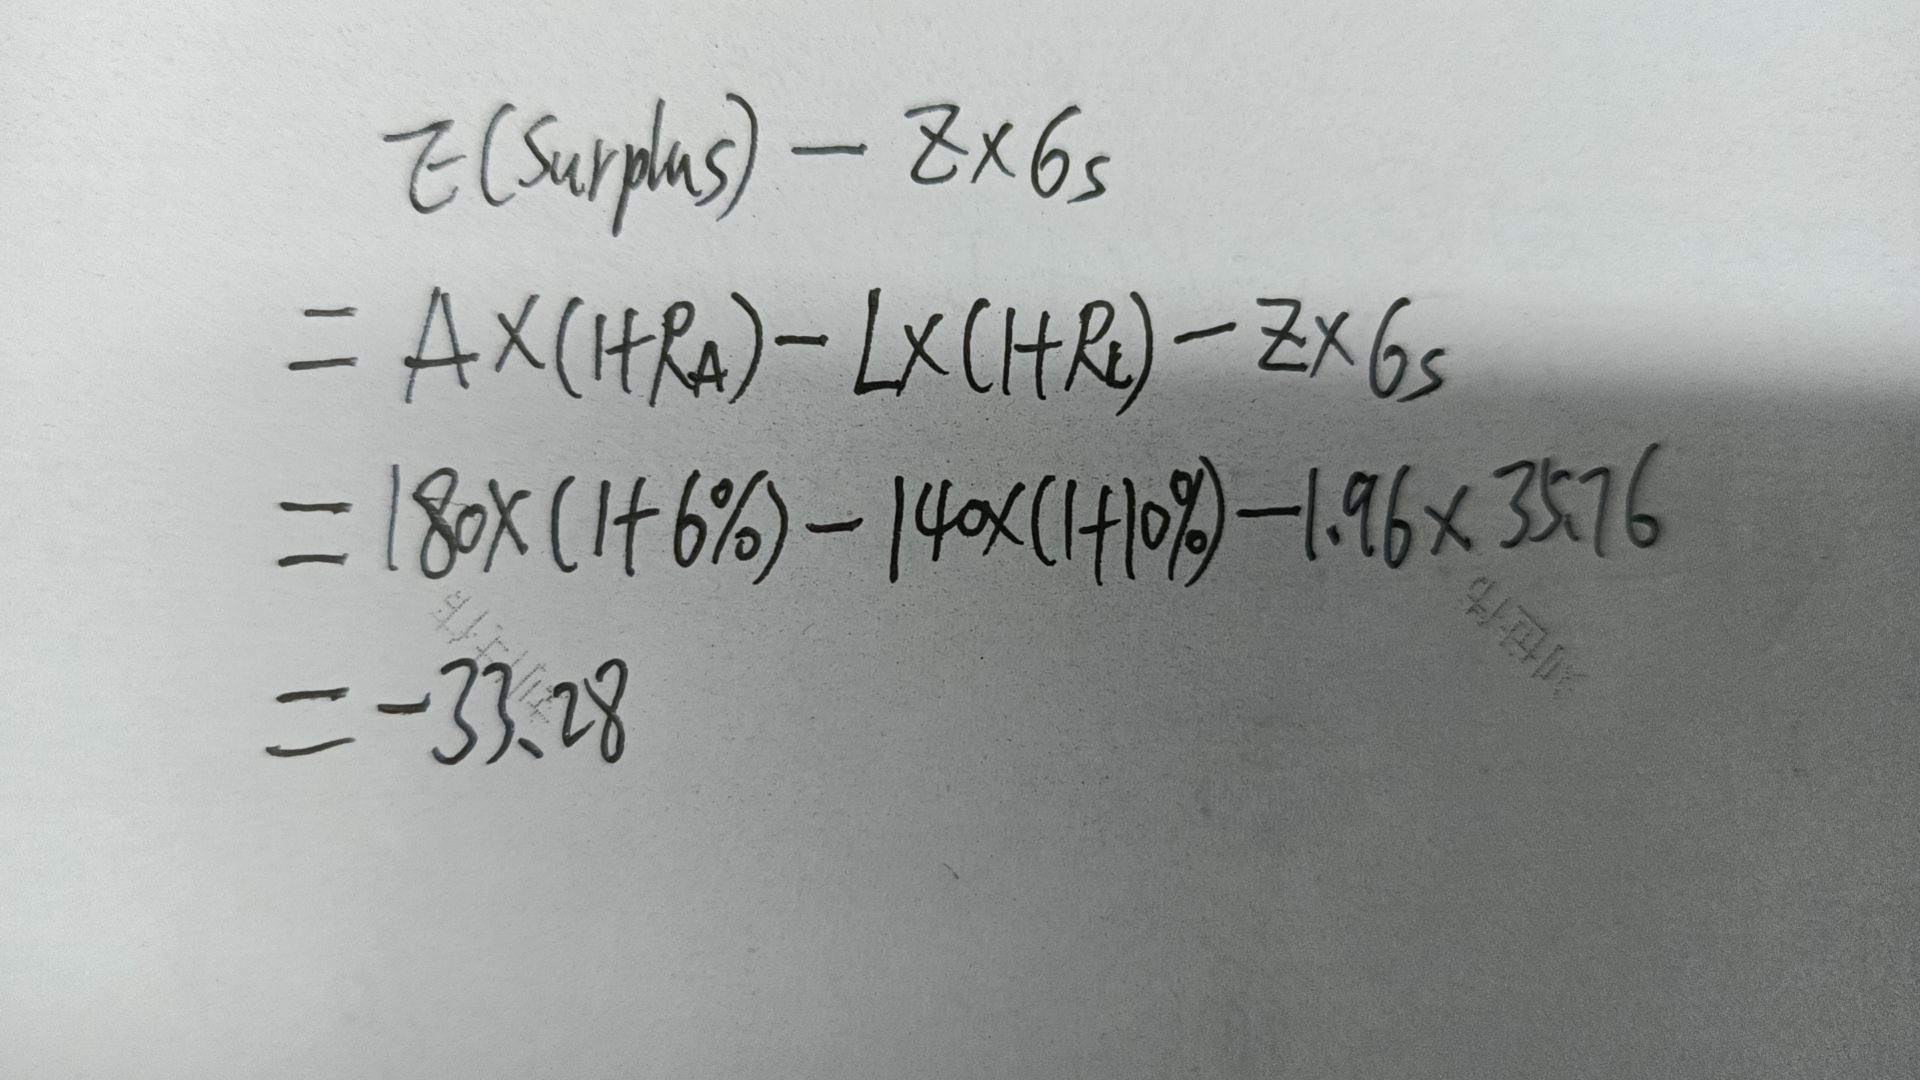 E(Surplus) - Z×σs
= A×(1+RA) - L×(1+RL) - Z×σs
= 180×(1+6%) - 140×(1+10%) - 1.96×35.76
= -33.28